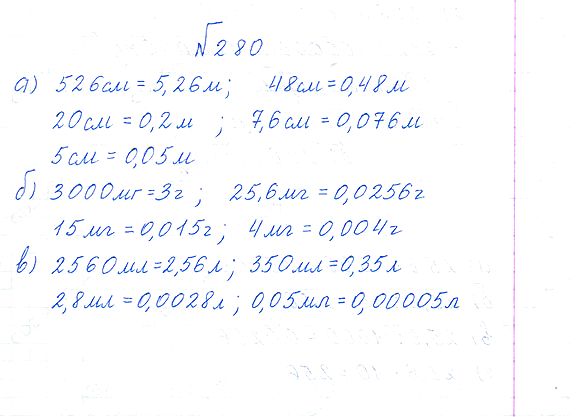 №280
а) 526см = 5,26м; 48см = 0,48м
20см = 0,2м ; 7,6см = 0,076м
5см = 0,05м
б) 3000мг = 3г ; 25,6мг = 0,0256г
15мг = 0,015г ; 4мг = 0,004г
в) 2560мл = 2,56л ; 350мл = 0,35л
2,8мл = 0,0028л ; 0,05мл = 0,00005л